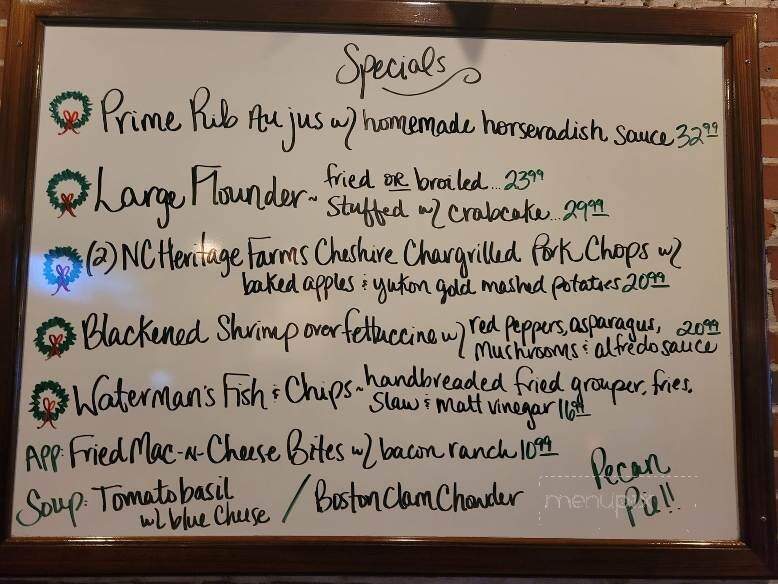 Specials
Prime Rib Au jus w/ homemade horseradish sauce 32.99
Large Flounder ~ fried OR broiled... 23.99
Stuffed w/ crabcake... 29.99
(2) NC Heritage Farms Cheshire Chargrilled Pork Chops w/
baked apples & yukon gold mashed potatoes 20.99
Blackened Shrimp over fettuccine w/ red peppers, asparagus, 20.99
mushrooms & alfredo sauce
Waterman's Fish & Chips ~ handbreaded fried grouper, fries,
Slaw & malt vinegar 16.99
APP: Fried Mac-N-Cheese Bites w/ bacon ranch 10.99
Soup: Tomato basil / Boston Clam Chowder
w/ blue cheese
Pecan
Pie!!